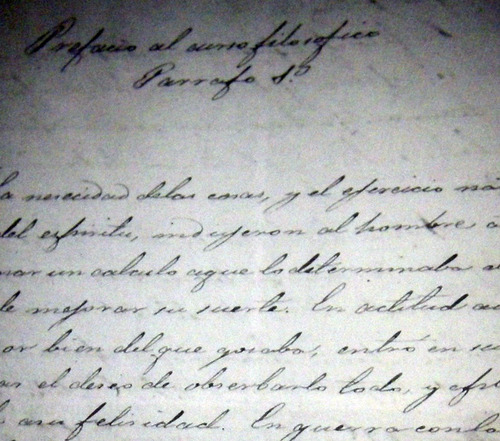 Prefacio al curso filosofico
Parrafo 1.º
la nececidad de las cosas, y el ejercicio
del espiritu, indujeron al hombre a
un calculo a que lo determinaba
de mejorar su suerte. En actitud
or bien del que gosaba, entró en su
ar el deseo de obserbarlo todo, y
asu felisidad. En guerra con lo